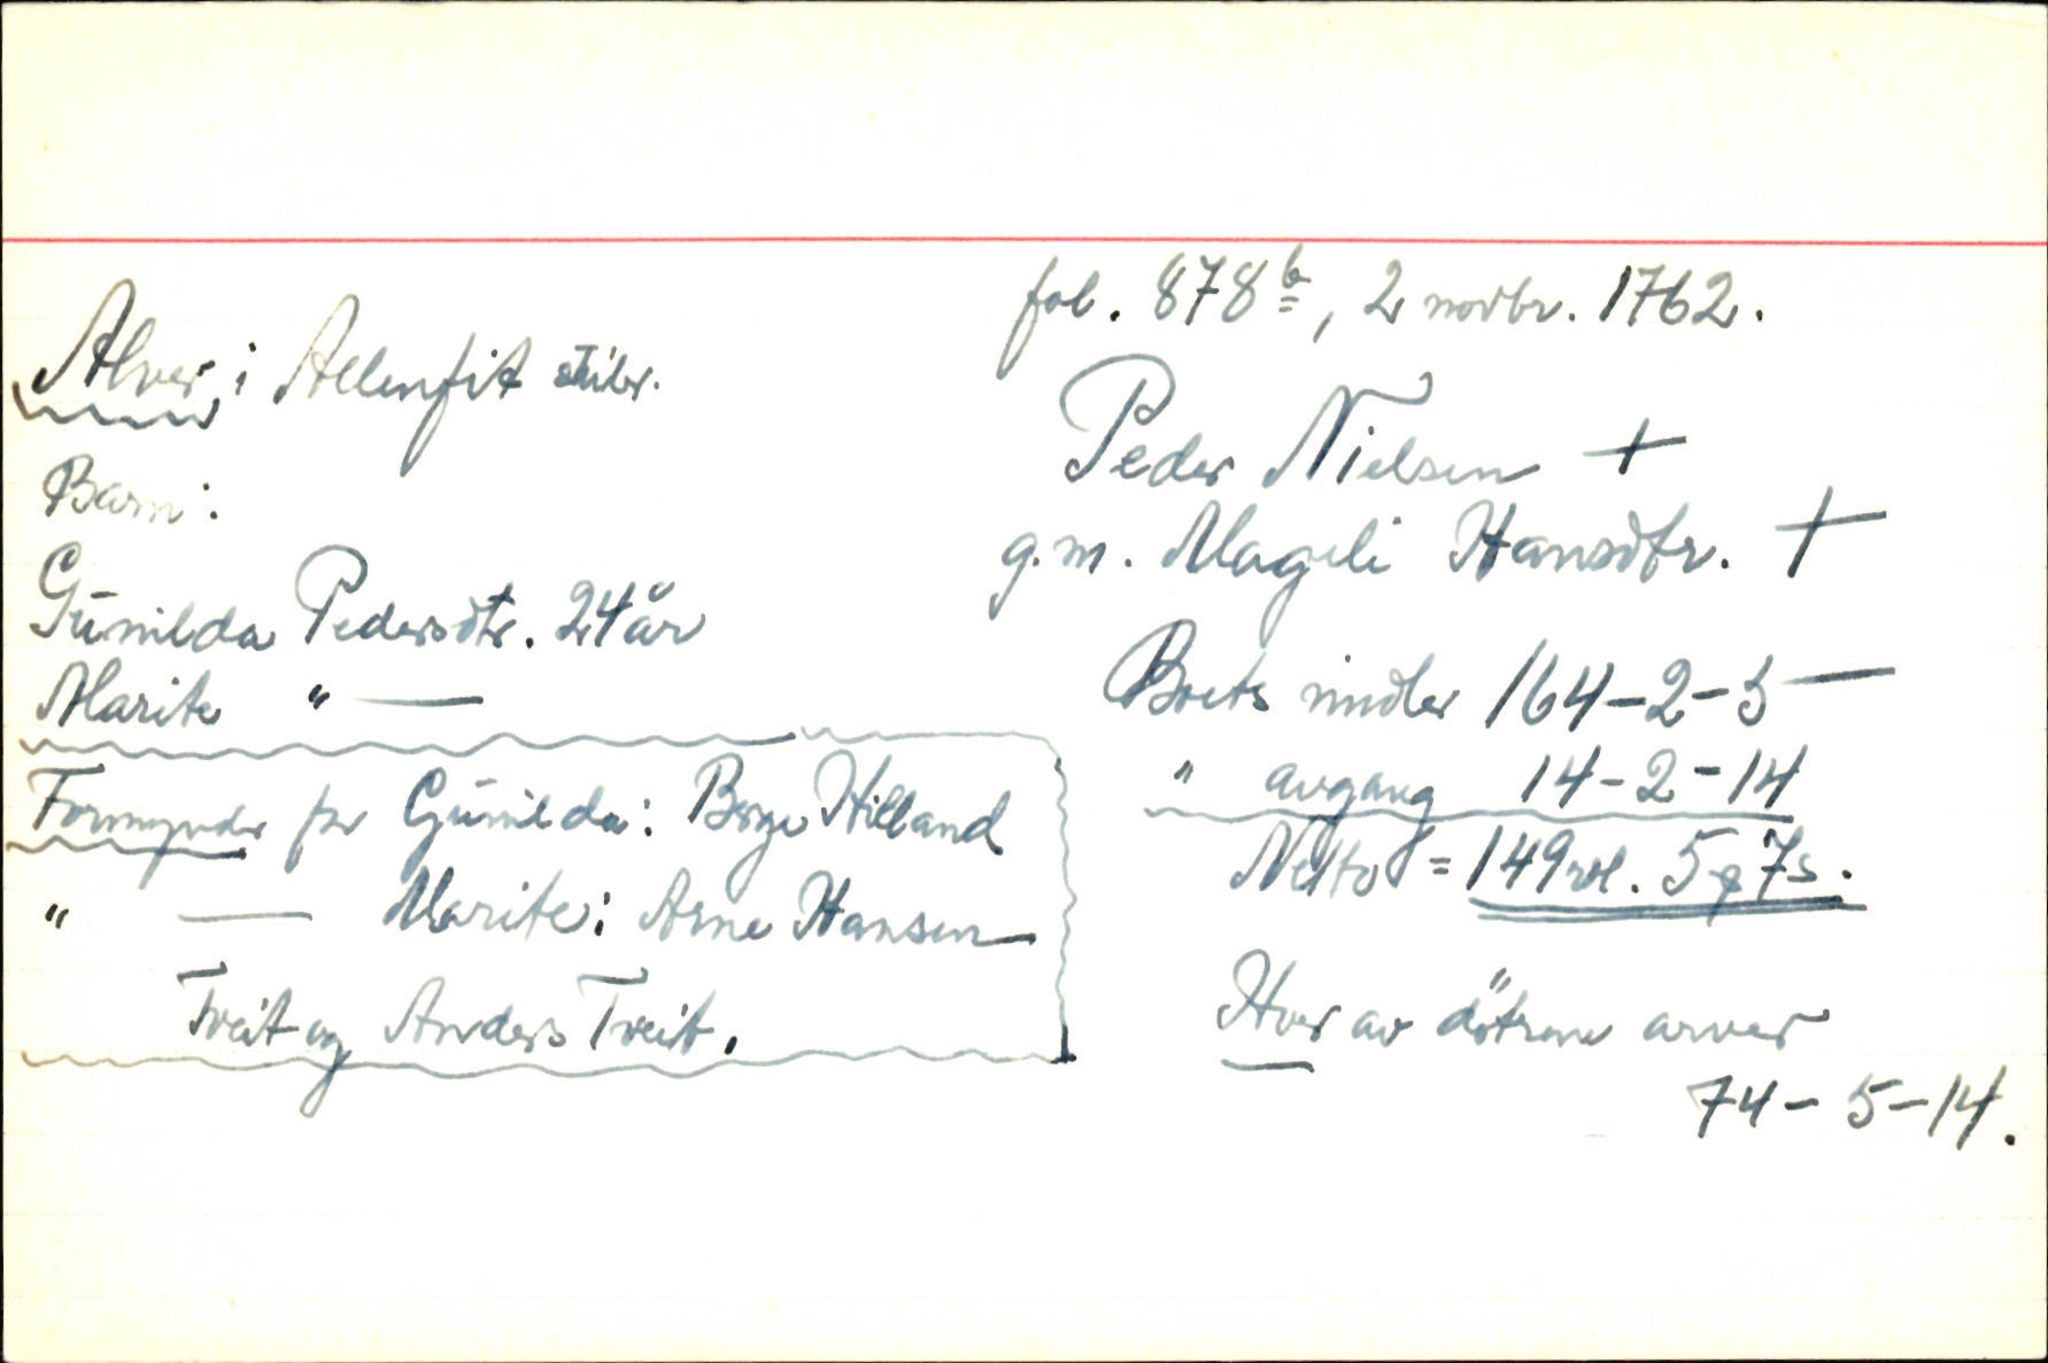 fol. 878b, 2 novbr. 1762.
Alver i Allenfit skibr.
Peder Nielsen +
Barn:
g.m. Mageli Hansdtr. +
Gūnilda Pedersdtr. 24 år
Boets midler 164-2-5 —
Marite " —
" avgang 14-2-14
Formynder for Gūnilda: Børge Hilland
Netto = 149 rdl. 5 ƍ 7 s.
" — Marite: Arne Hansen
Tveit og Anders Tveit.
Hver av døtrene arver
74-5-14.